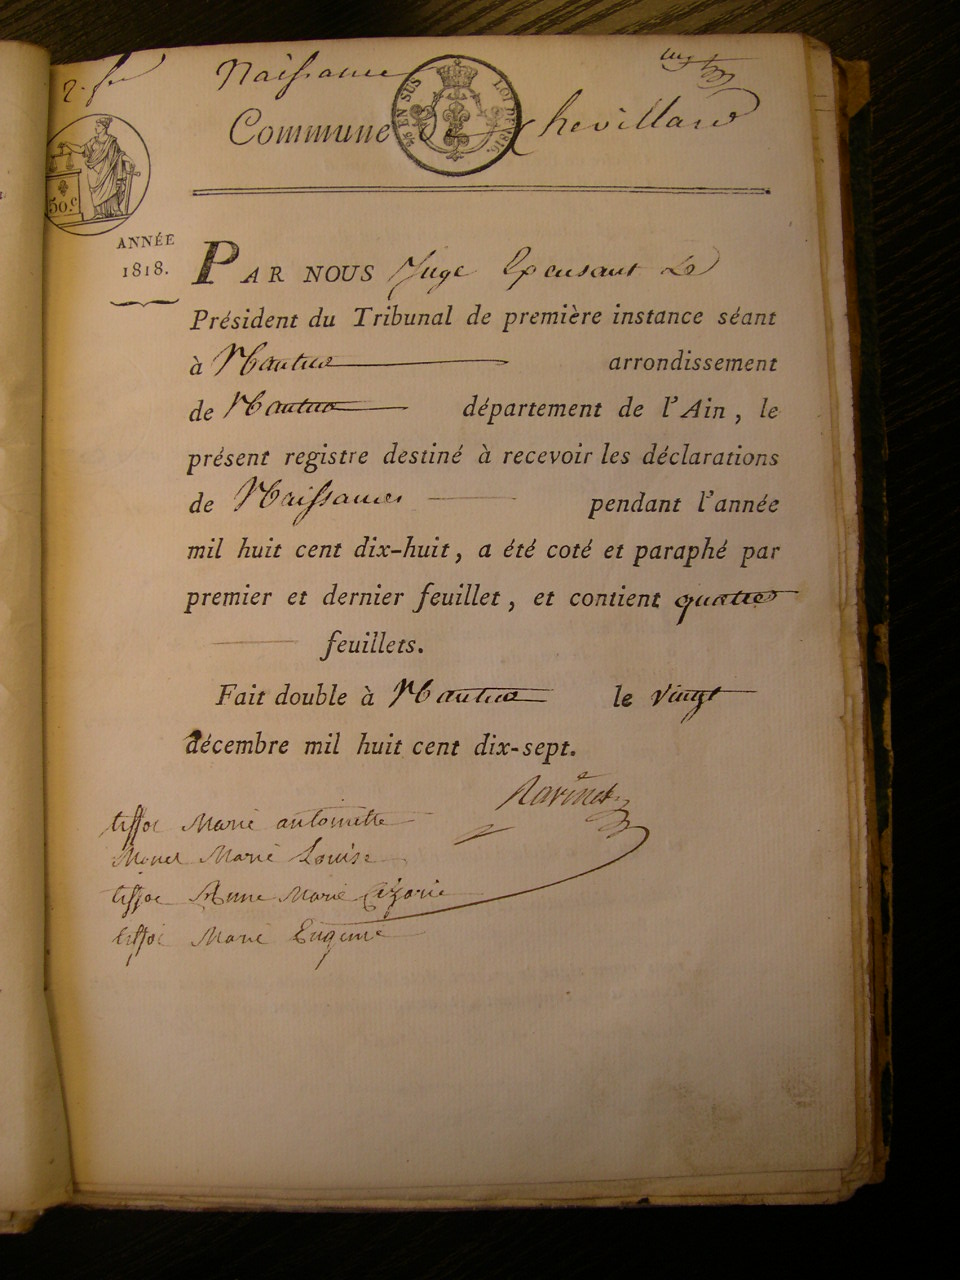 Naissance
Commune de Chevillard
EN SUS LOI DE 1816.
50.c
ANNÉE
1818.
PAR NOUS Juge Exensant Le
Président du Tribunal de première instance séant
à Nantua arrondissement
de Nantua département de l'Ain, le
présent registre destiné à recevoir les déclarations
de Naissances pendant l'année
mil huit cent dix-huit, a été coté et paraphé par
premier et dernier feuillet, et contient quatre
feuillets.
Fait double à Nantua le vingt
décembre mil huit cent dix-sept.
Ravinet
tissot Marie antoinette
Monet Marie Louise
tissot Anne Marie
tissot Marie Eugenie